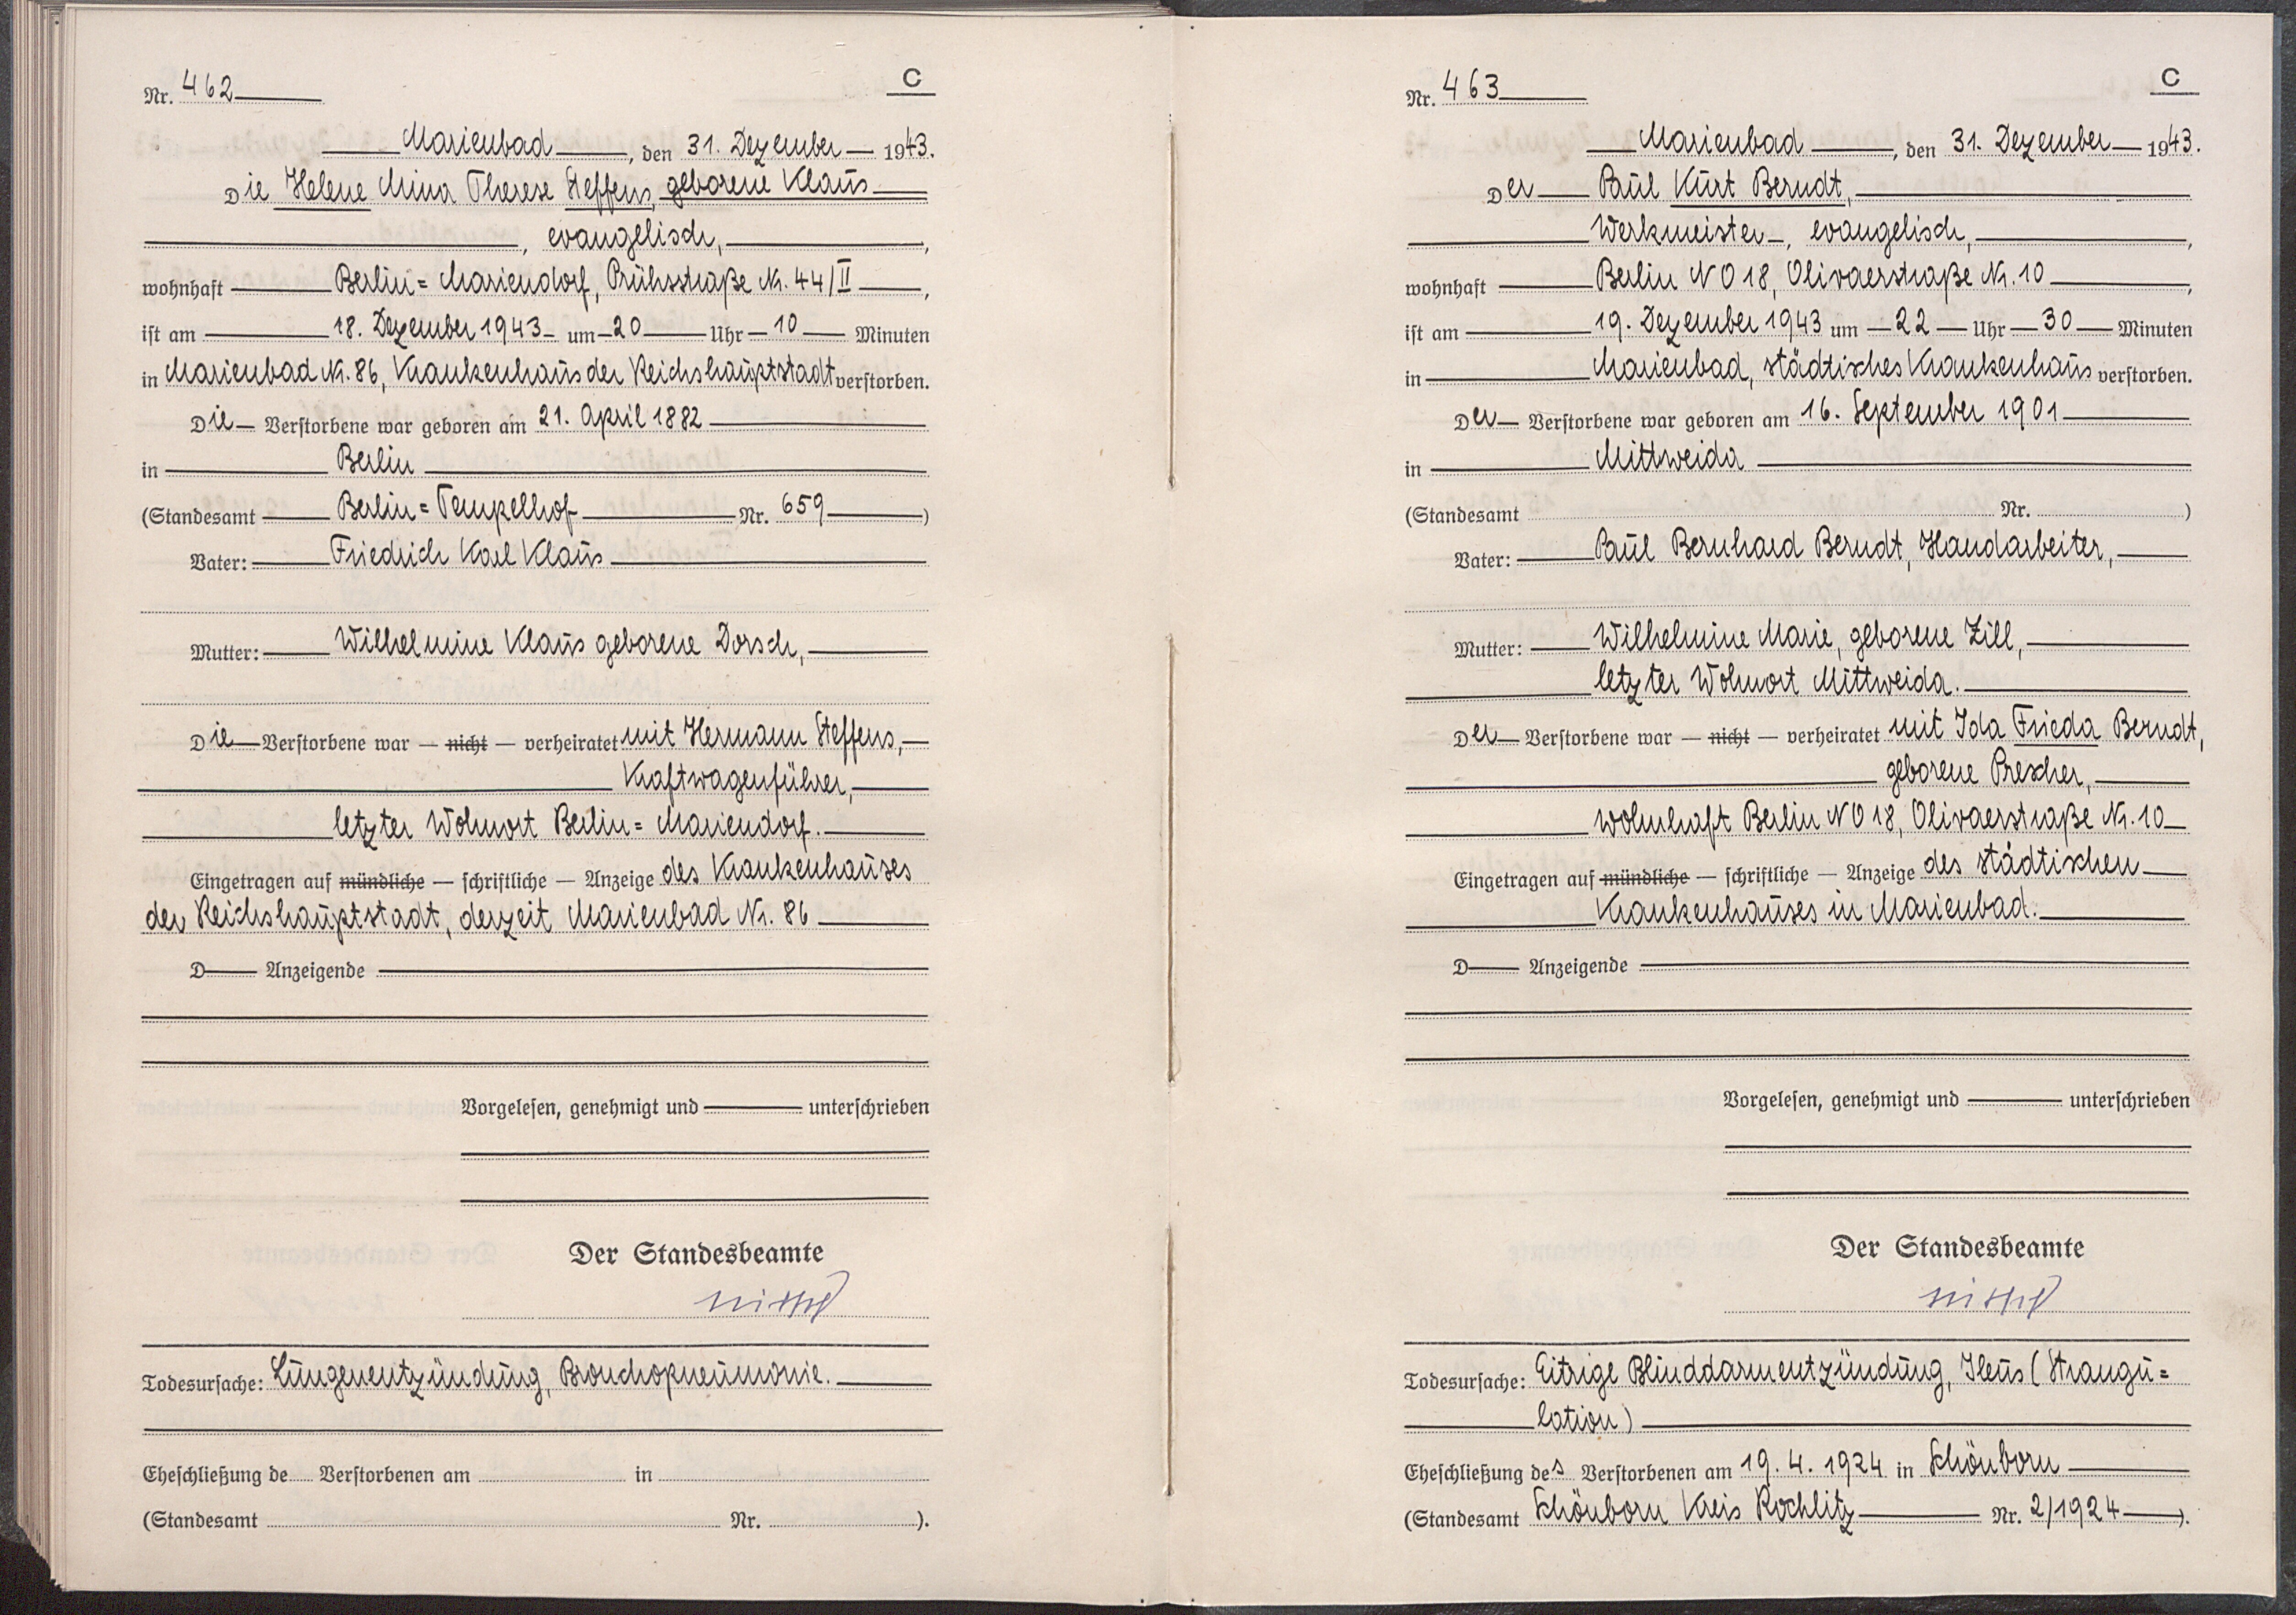 Nr. 462
C
Marienbad, den 31. Dezember 1943.
Die Helene Mina Therese Steffens, geborene Klaus
, evangelisch,
wohnhaft Berlin=Mariendorf, Prühsstraße Nr. 44/II,
ist am 18. Dezember 1943 um 20 Uhr 10 Minuten
in Marienbad Nr. 86, Krankenhaus der Reichshauptstadt verstorben.
Die Verstorbene war geboren am 21. April 1882
in Berlin
(Standesamt Berlin=Tempelhof Nr. 659)
Vater: Friedrich Karl Klaus
Mutter: Wilhelmine Klaus geborene Dorsch,
Die Verstorbene war — nicht — verheiratet mit Hermann Steffens,
Kraftwagenführer,
letzter Wohnort Berlin=Mariendorf.
Eingetragen auf mündliche — schriftliche — Anzeige des Krankenhauses
der Reichshauptstadt, derzeit Marienbad Nr. 86
D Anzeigende
Vorgelesen, genehmigt und unterschrieben
Der Standesbeamte
Todesursache: Lungenentzündung, Bronchopneumonie.
Eheschließung de Verstorbenen am in
(Standesamt Nr. ).
Nr. 463
C
Marienbad, den 31. Dezember 1943.
Der Paul Kurt Berndt,
Werkmeister, evangelisch,
wohnhaft Berlin NO 18, Olivaerstraße Nr. 10,
ist am 19. Dezember 1943 um 22 Uhr 30 Minuten
in Marienbad, städtisches Krankenhaus verstorben.
Der Verstorbene war geboren am 16. September 1901
in Mittweida
(Standesamt Nr. )
Vater: Paul Bernhard Berndt, Handarbeiter,
Mutter: Wilhelmine Marie, geborene Zill,
letzter Wohnort Mittweida.
Der Verstorbene war — nicht — verheiratet mit Ida Frieda Berndt,
geborene Prescher,
wohnhaft Berlin NO 18, Olivaerstraße Nr. 10
Eingetragen auf mündliche — schriftliche — Anzeige des städtischen
Krankenhauses in Marienbad.
D Anzeigende
Vorgelesen, genehmigt und unterschrieben
Der Standesbeamte
Todesursache: Eitrige Blinddarmentzündung, Ileus (Strangu=
lation)
Eheschließung des Verstorbenen am 19. 4. 1924 in Schönborn
(Standesamt Schönborn Kreis Rochlitz Nr. 2/1924).